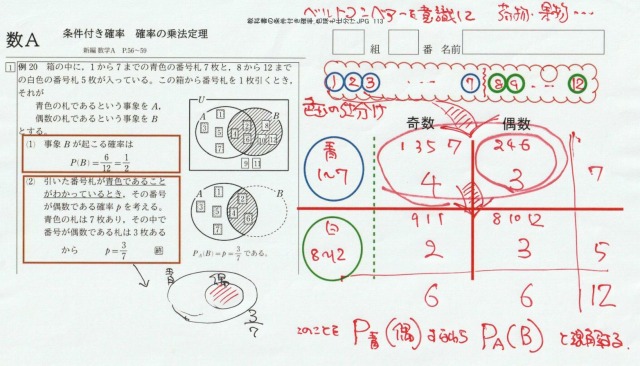 ベルトコンベアーを意識して 荷物・果物…
数A 条件付き確率 確率の乗法定理
新編 数学A P.56~59
組 番 名前
1 例 20 箱の中に，1から7までの青色の番号札7枚と，8から12まで
の白色の番号札5枚が入っている。この箱から番号札を1枚引くとき，
それが
青色の札であるという事象を A，
偶数の札であるという事象を B
とする。
(1) 事象 B が起こる確率は
P(B)=6/12=1/2
(2) 引いた番号札が青色であること
がわかっているとき，その番号
が偶数である確率 p を考える。
青色の札は7枚あり，その中で
番号が偶数である札は3枚ある
から p=3/7 終
U
A B
A B
P_A(B)=p=3/7 である。
青 偶
3/7
1 2 3 … 7 8 9 … 12
奇数 偶数
青 1~7 1 3 5 7 2 4 6
4 3 7
白 8~12 9 11 8 10 12
2 3 5
6 6 12
このことを P青(偶) すなわち P_A(B) と